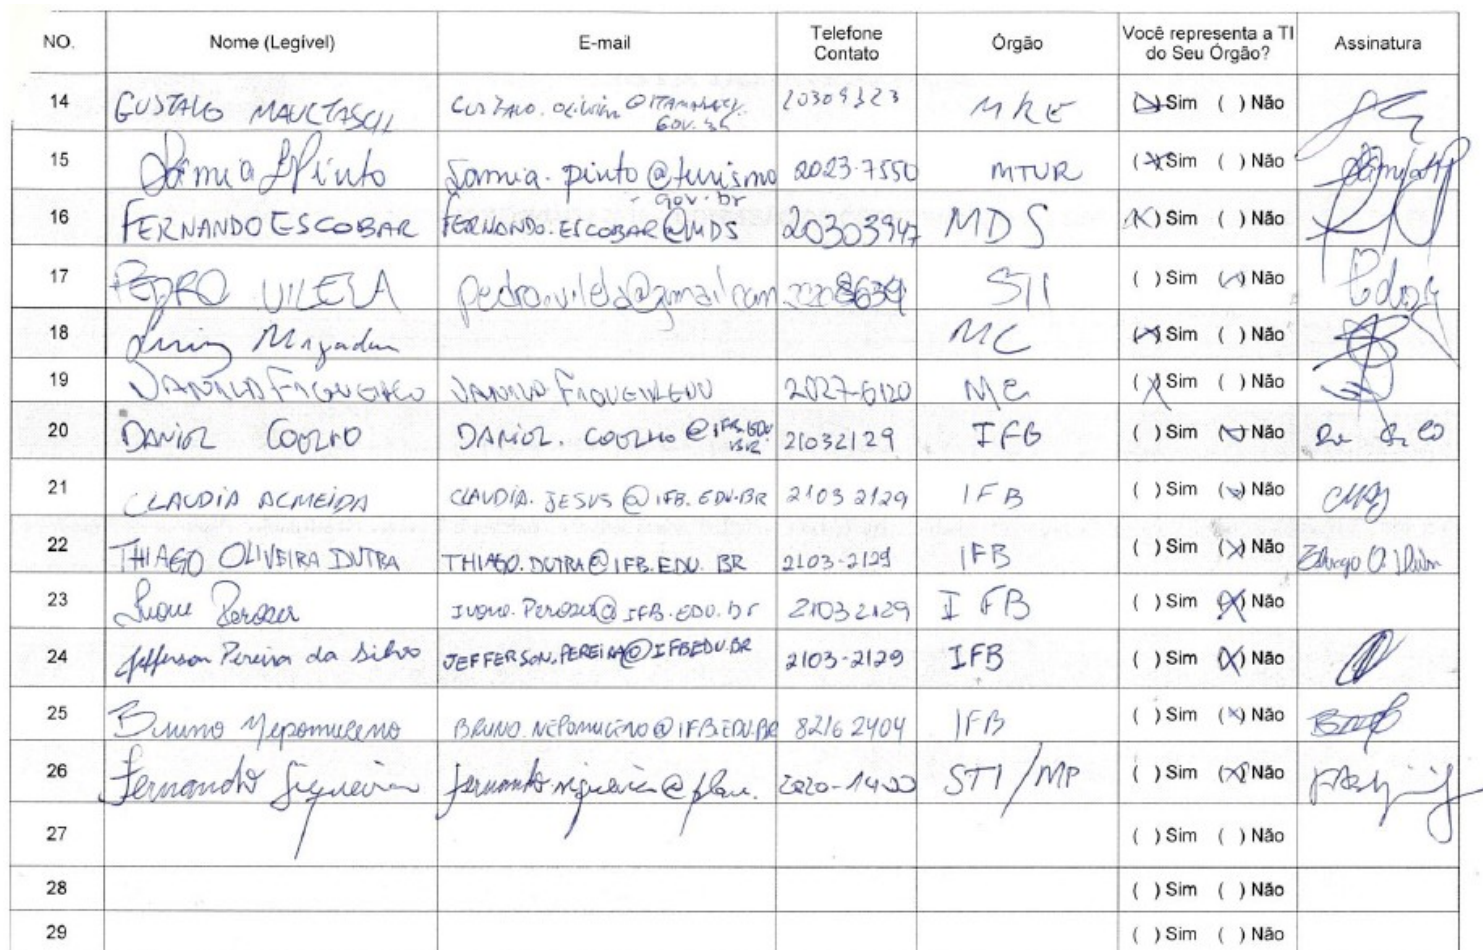 NO. Nome (Legível) E-mail Telefone Contato Órgão Você representa a TI do Seu Órgão? Assinatura
14 GUSTAVO 20309323 MRE ( ) Sim ( ) Não
GOV.BR
15 Jamia. pinto@turismo 2023-7550 MTUR (X) Sim ( ) Não
gov.br
16 FERNANDO ESCOBAR FERNANDO.ESCOBAR@MDS 20303947 MDS (X) Sim ( ) Não
17 PEDRO VILELA pedro.vilela@gmail.com STI ( ) Sim (X) Não
18 Luiz MC (X) Sim ( ) Não
19 2027-6120 MC (X) Sim ( ) Não
20 DANIEL COELHO DANIEL.COELHO@IFB.EDU.BR 21032129 IFB ( ) Sim (X) Não
21 CLAUDIA ALMEIDA CLAUDIA.JESUS@IFB.EDU.BR 2103 2129 IFB ( ) Sim (X) Não
22 THIAGO OLIVEIRA DUTRA THIAGO.DUTRA@IFB.EDU.BR 2103-2129 IFB ( ) Sim (X) Não
23 21032129 IFB ( ) Sim (X) Não
24 Jefferson Pereira da Silva JEFFERSON.PEREIRA@IFB.EDU.BR 2103-2129 IFB ( ) Sim (X) Não
25 Bruno Nepomuceno BRUNO.NEPOMUCENO@IFB.EDU.BR 8216 2404 IFB ( ) Sim (X) Não
26 Fernando Siqueira fernando.siqueira@plan. STI/MP ( ) Sim (X) Não
27 ( ) Sim ( ) Não
28 ( ) Sim ( ) Não
29 ( ) Sim ( ) Não